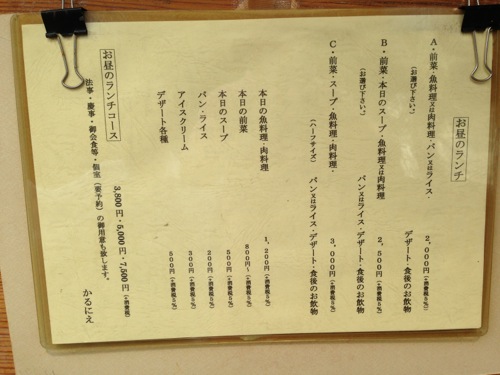 お昼のランチ
A・前菜・魚料理又は肉料理・パン又はライス・デザート・食後のお飲物
(お選び下さい。) 2,000円(+消費税5%)
B・前菜・本日のスープ・魚料理又は肉料理
(お選び下さい。) パン又はライス・デザート・食後のお飲物
2,500円(+消費税5%)
C・前菜・スープ・魚料理・肉料理・パン又はライス・デザート・食後のお飲物
(ハーフサイズ) 3,000円(+消費税5%)
本日の魚料理・肉料理 1,200円(+消費税5%)
本日の前菜 800円〜(+消費税5%)
本日のスープ 500円(+消費税5%)
パン・ライス 200円(+消費税5%)
アイスクリーム 300円(+消費税5%)
デザート各種 500円(+消費税5%)
お昼のランチコース
3,800円・5,000円・7,500円(+消費税)
法事・慶事・御会食等・個室(要予約)の御用意も致します。
かるにえ